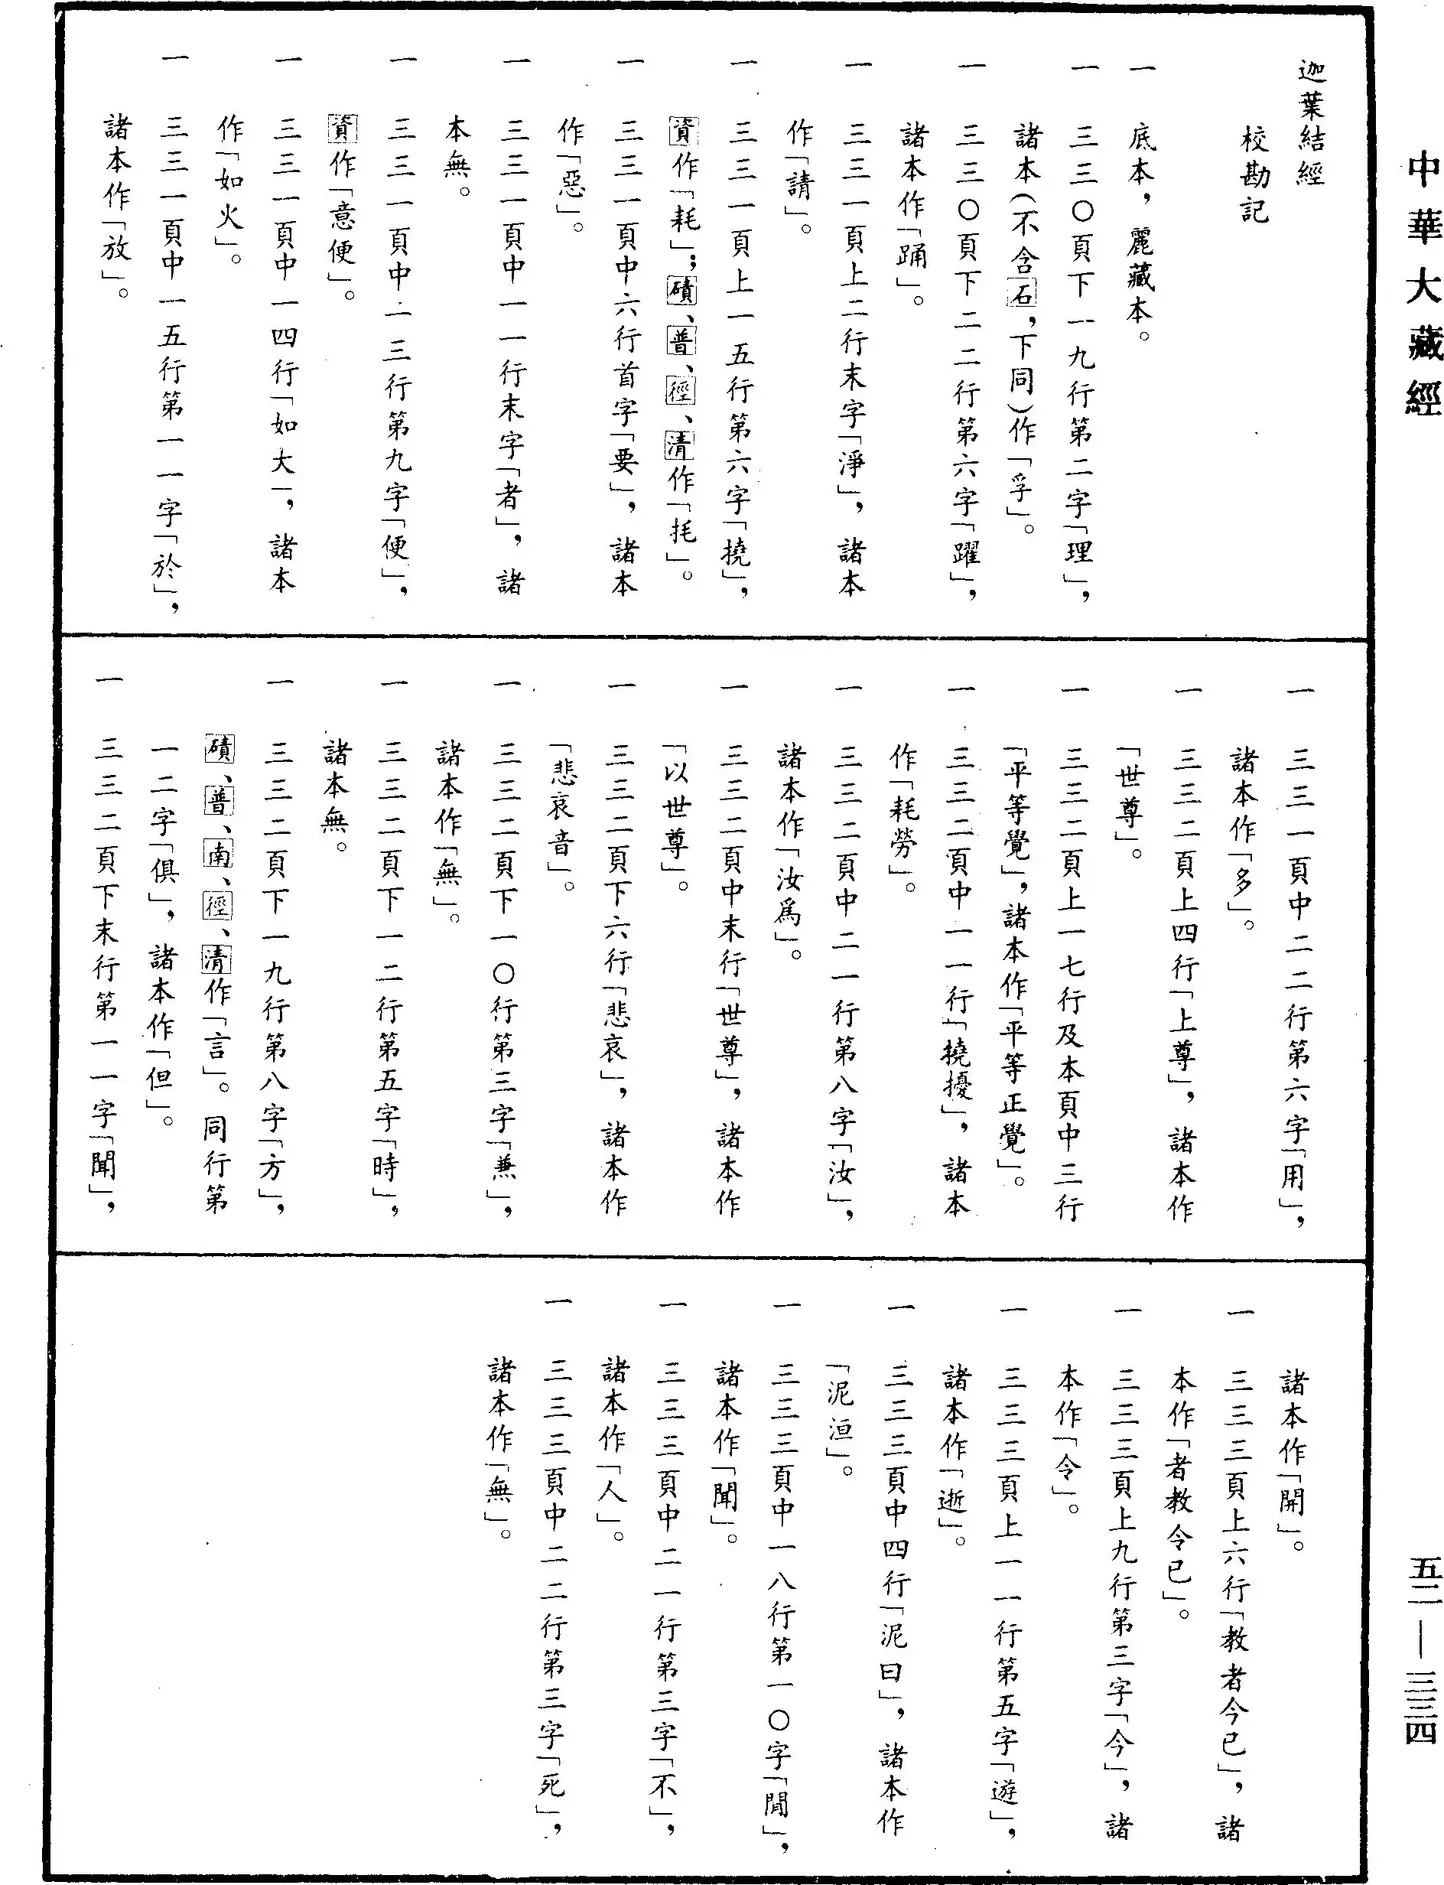 中華大藏經
迦葉結經
校勘記
一　底本，麗藏本。
一　三三〇頁下一九行第二字「理」，
諸本（不含石，下同）作「孚」。
一　三三〇頁下二二行第六字「躍」，
諸本作「踊」。
一　三三一頁上二行末字「淨」，諸本
作「請」。
一　三三一頁上一五行第六字「撓」，
資作「耗」；磧、普、徑、清作「托」。
一　三三一頁中六行首字「要」，諸本
作「惡」。
一　三三一頁中一一行末字「者」，諸
本無。
一　三三一頁中二三行第九字「便」，
資作「意便」。
一　三三一頁中一四行「如大」，諸本
作「如火」。
一　三三一頁中一五行第一一字「於」，
諸本作「放」。
一　三三一頁中二二行第六字「用」，
諸本作「多」。
一　三三二頁上四行「上尊」，諸本作
「世尊」。
一　三三二頁上一七行及本頁中三行
「平等覺」，諸本作「平等正覺」。
一　三三二頁中一一行「撓擾」，諸本
作「耗勞」。
一　三三二頁中二一行第八字「汝」，
諸本作「汝爲」。
一　三三二頁中末行「世尊」，諸本作
「以世尊」。
一　三三二頁下六行「悲哀」，諸本作
「悲哀音」。
一　三三二頁下一〇行第三字「兼」，
諸本作「無」。
一　三三二頁下一二行第五字「時」，
諸本無。
一　三三二頁下一九行第八字「方」，
磧、普、南、徑、清作「言」。同行第
一二字「俱」，諸本作「但」。
一　三三二頁下末行第一一字「聞」，
諸本作「開」。
一　三三三頁上六行「教者今已」，諸
本作「者教令已」。
一　三三三頁上九行第三字「今」，諸
本作「令」。
一　三三三頁上一一行第五字「遊」，
諸本作「逝」。
一　三三三頁中四行「泥曰」，諸本作
「泥洹」。
一　三三三頁中一八行第一〇字「閒」，
諸本作「聞」。
一　三三三頁中二一行第三字「不」，
諸本作「人」。
一　三三三頁中二二行第三字「死」，
諸本作「無」。
五二—三三四